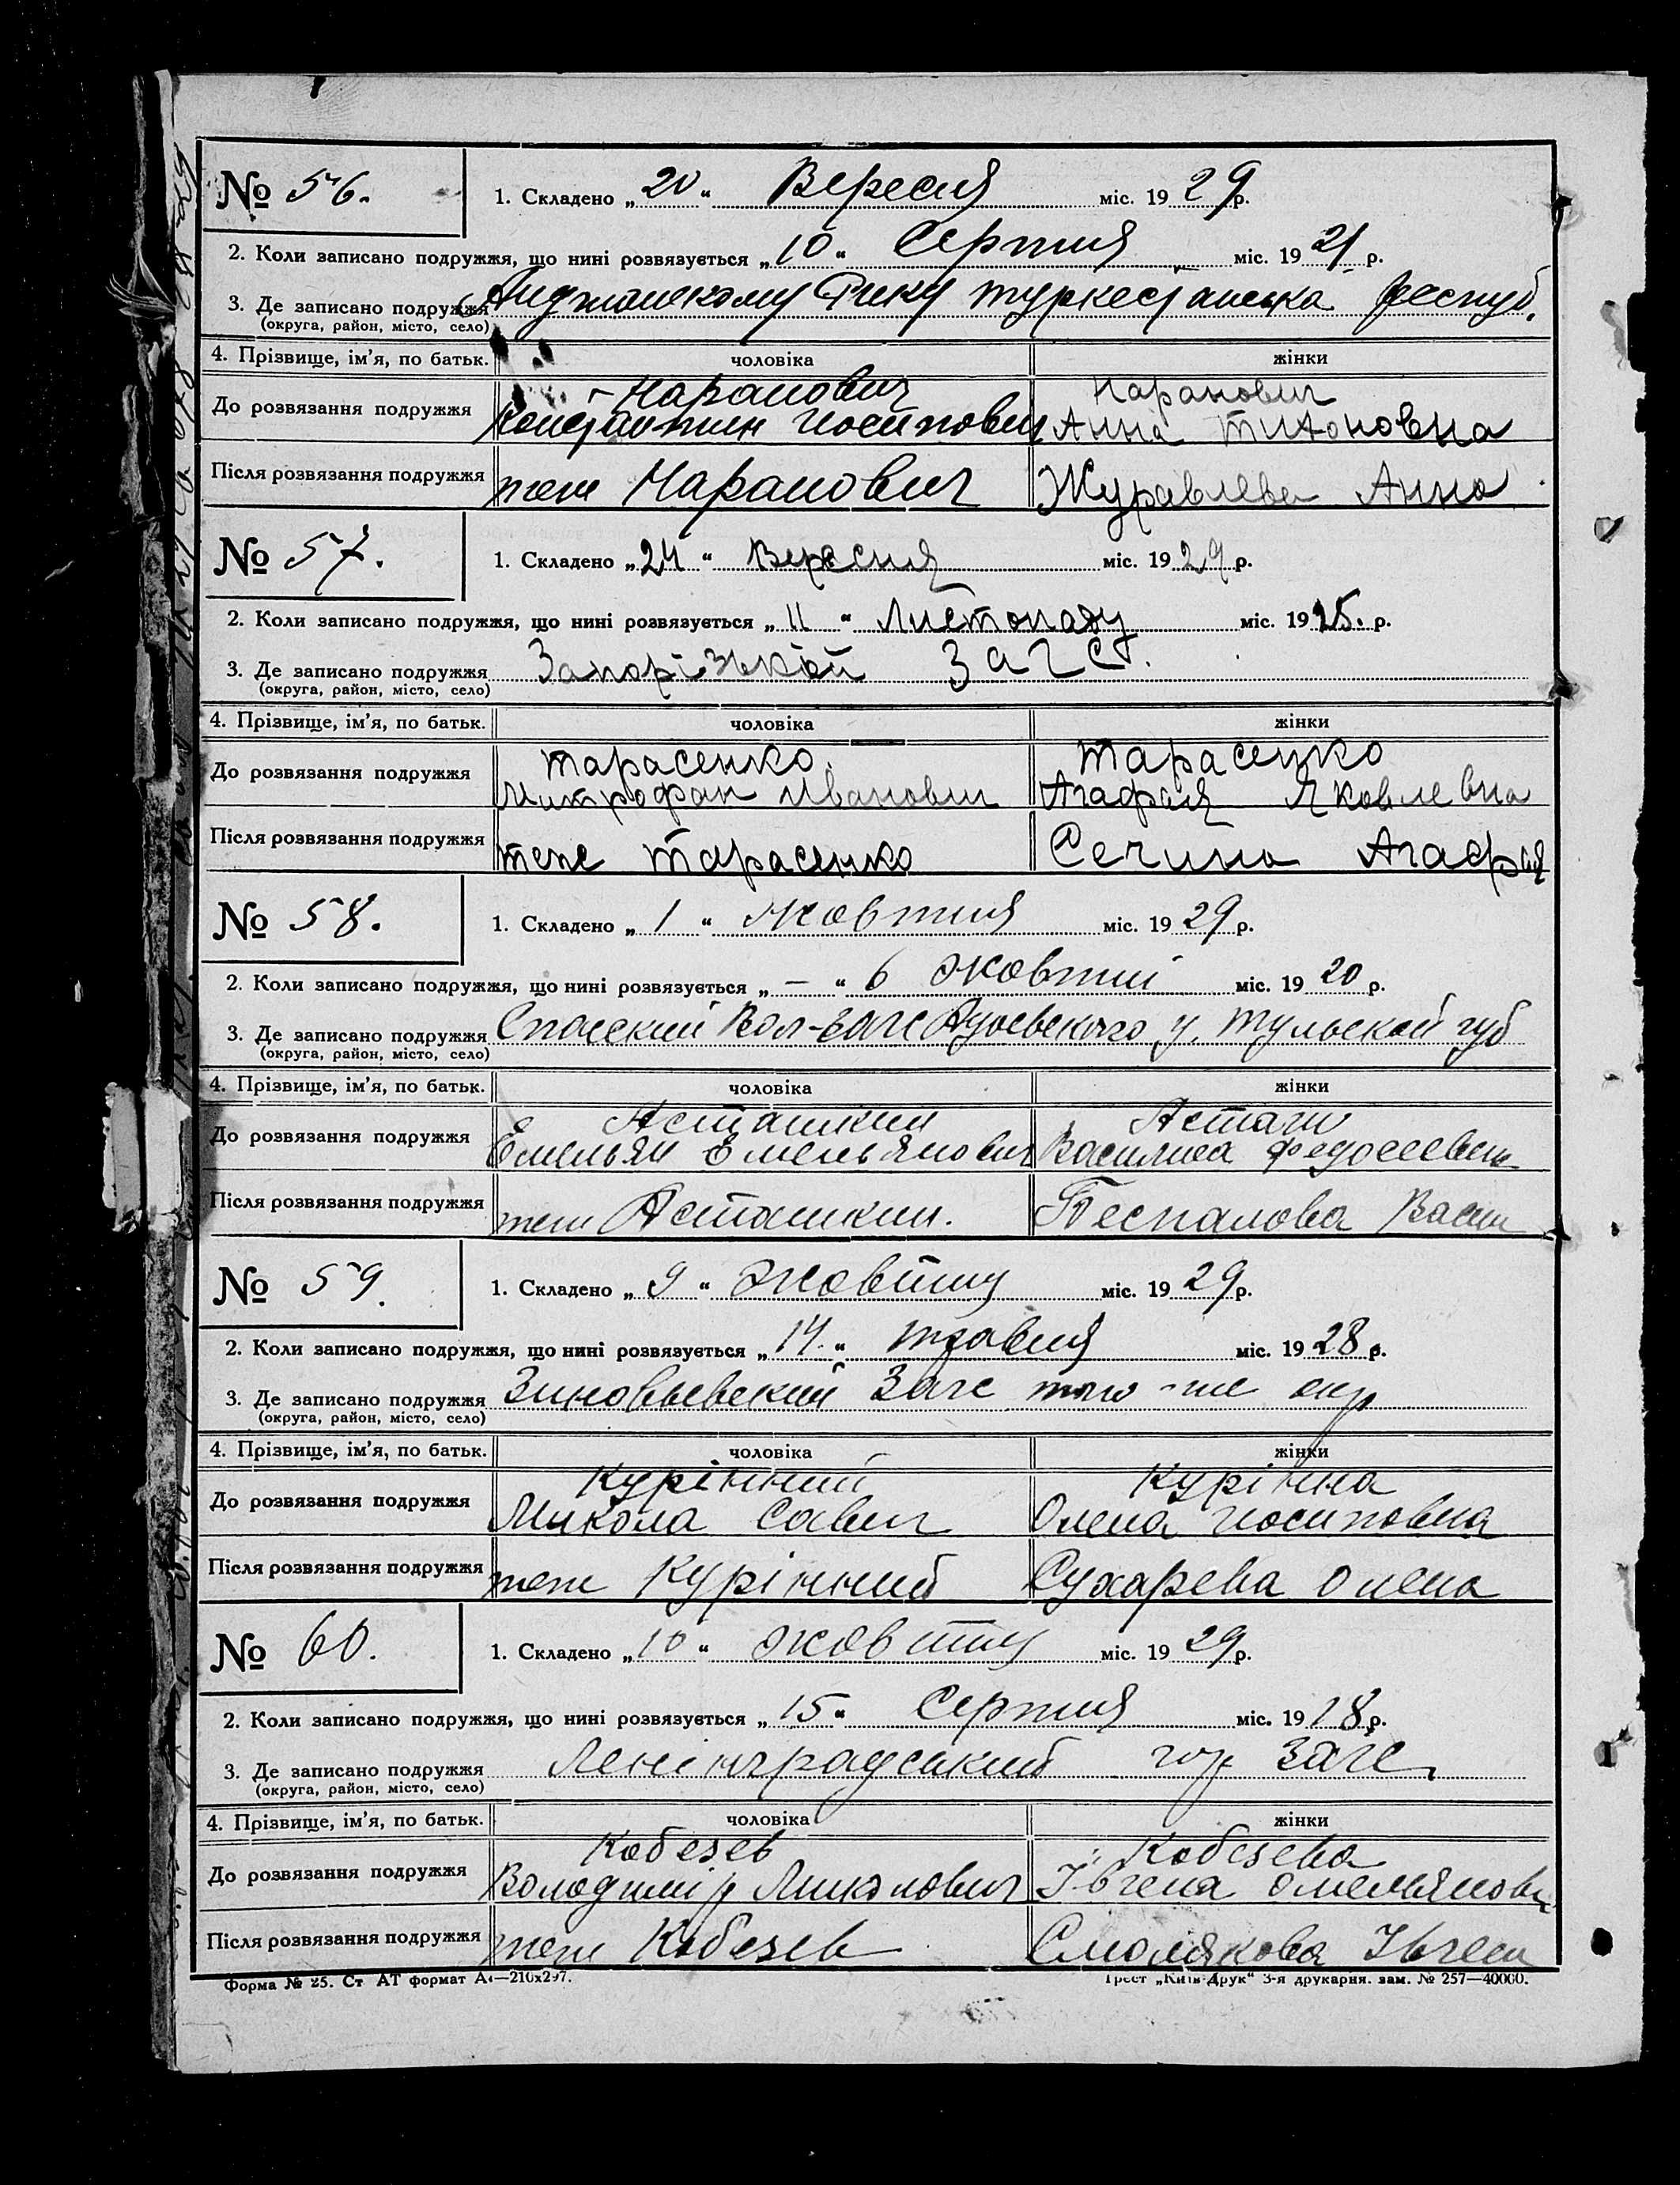 № 56. 1. Складено „20“ Вересня міс. 1929 р.
2. Коли записано подружжя, що нині розвязується „10“ Серпня міс. 1921 р.
3. Де записано подружжя туркестанська респуб.
(округа, район, місто, село)
4. Прізвище, ім'я, по батьк. чоловіка жінки
Наранович Наранович
До розвязання подружжя Константин Иосипович Анна Тихоновна
Після розвязання подружжя теж Наранович Журавлева Анна
№ 57. 1. Складено „24“ Вересня міс. 1929 р.
2. Коли записано подружжя, що нині розвязується „11“ Листопаду міс. 1925. р.
3. Де записано подружжя Запорізький Загс.
(округа, район, місто, село)
4. Прізвище, ім'я, по батьк. чоловіка жінки
Тарасенко Тарасенко
До розвязання подружжя Митрофан Иванович Агафія Яковлевна
Після розвязання подружжя теж Тарасенко Сечина Агафія
№ 58. 1. Складено „1“ Жовтня міс. 1929 р.
2. Коли записано подружжя, що нині розвязується „—“ 6 Жовтні міс. 1920 р.
3. Де записано подружжя Спасский Вол-Загс у. Тульской губ
(округа, район, місто, село)
4. Прізвище, ім'я, по батьк. чоловіка жінки
Асташкин
До розвязання подружжя Емельян Емельянович Василиса
Після розвязання подружжя теж Асташкин. Беспалова Васил
№ 59. 1. Складено „9“ Жовтня міс. 1929 р.
2. Коли записано подружжя, що нині розвязується „14“ травня міс. 1928 р.
3. Де записано подружжя Зиновьевский Загс того-же окр
(округа, район, місто, село)
4. Прізвище, ім'я, по батьк. чоловіка жінки
Курінний Курінна
До розвязання подружжя Микола Савич Олена Иосиповна
Після розвязання подружжя теж Курінний Сухарева Олена
№ 60. 1. Складено „10“ Жовтня міс. 1929 р.
2. Коли записано подружжя, що нині розвязується „15“ Серпня міс. 1918 р.
3. Де записано подружжя Ленінградський гор Загс
(округа, район, місто, село)
4. Прізвище, ім'я, по батьк. чоловіка жінки
Кобезев Кобезева
До розвязання подружжя Володимір Миколович Івгена Омельяновн
Після розвязання подружжя теж Кобезев Смолякова Івгена
Форма № 25. Ст АТ формат А4—210х297. Трест „Київ-Друк“ 3-я друкарня. зам. № 257—40000.